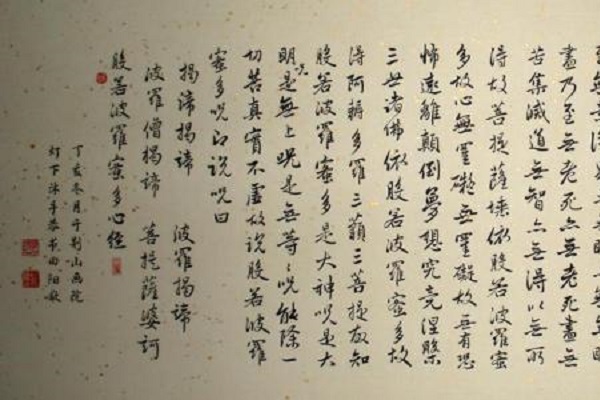 盡乃至無老死亦無老死盡無
苦集滅道無智亦無得以無所
得故菩提薩埵依般若波羅蜜
多故心無罣礙無罣礙故無有恐
怖遠離顛倒夢想究竟涅槃
三世諸佛依般若波羅蜜多故
得阿耨多羅三藐三菩提故知
般若波羅蜜多是大神呪是大
明呪是無上呪是無等々呪能除一
切苦真實不虛故説般若波羅
蜜多呪即説呪曰
揭諦揭諦 波羅揭諦
波羅僧揭諦 菩提薩婆訶
般若波羅蜜多心經
丁亥冬月于荆山画院
灯下沐手恭書曲阳